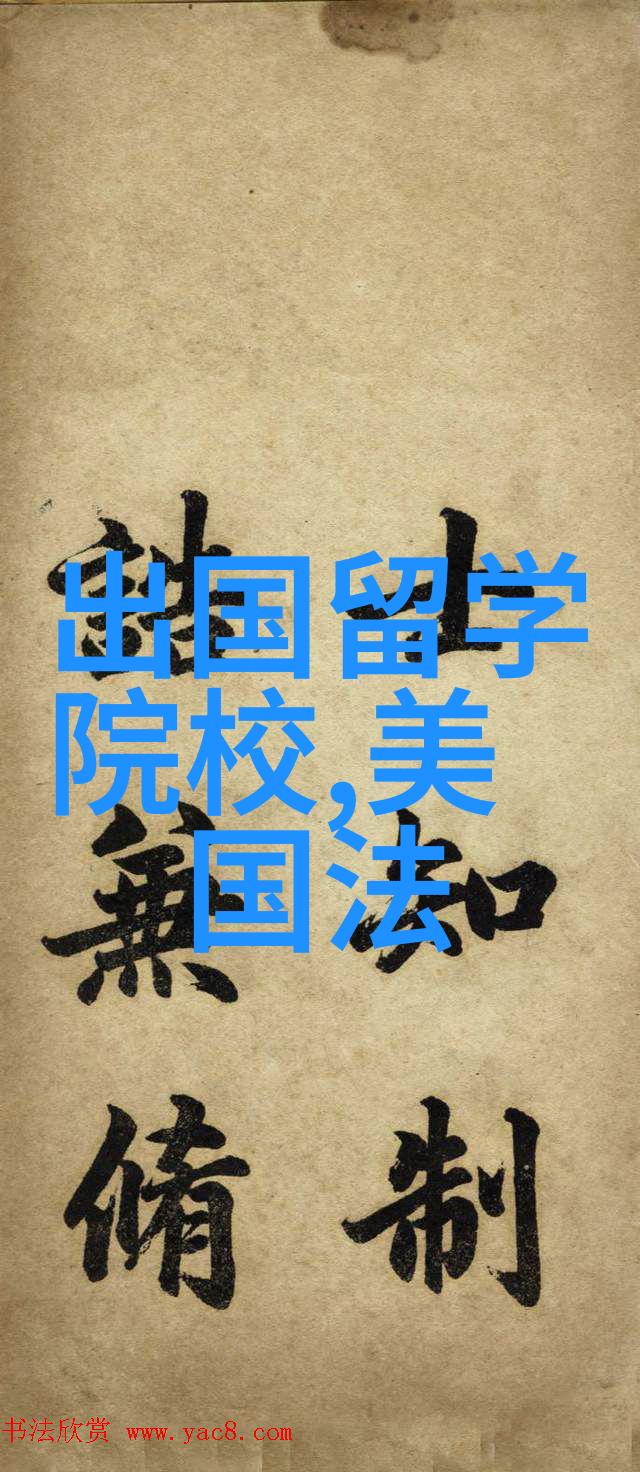 出国留学
院校,美
国法
士知制
誥兼脩
书法欣赏 www.yac8.com